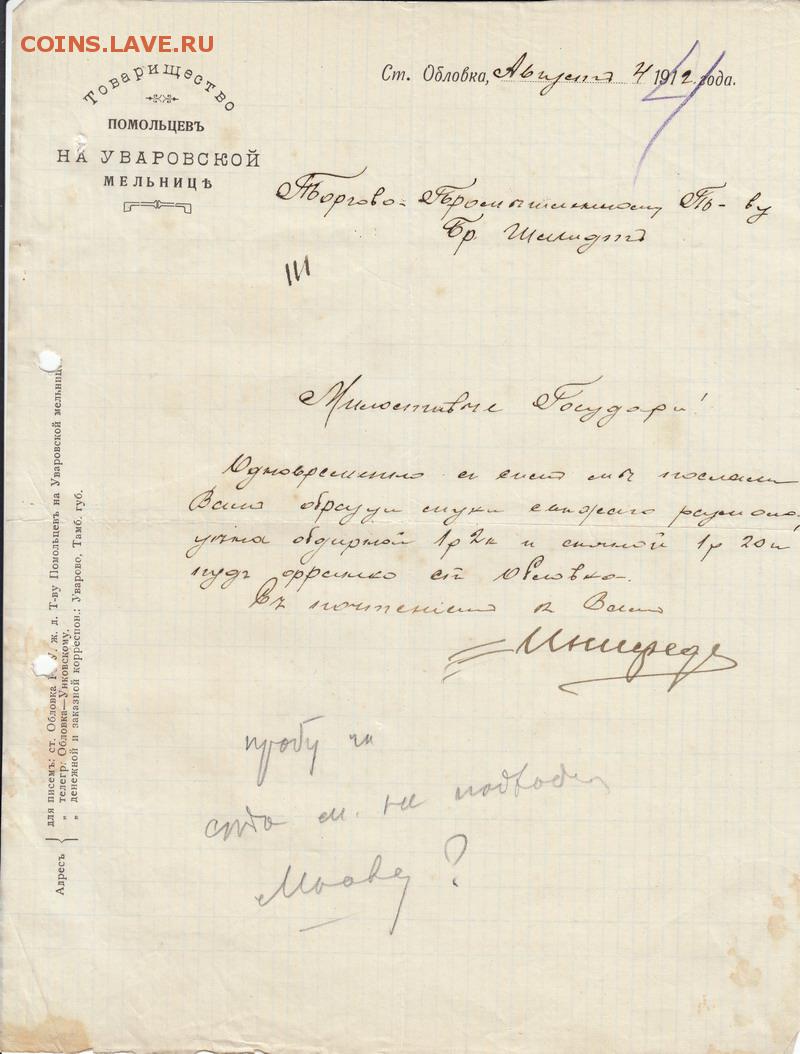 COINS.LAVE.RU
Товарищество
ПОМОЛЬЦЕВЪ
НА УВАРОВСКОЙ
МЕЛЬНИЦѢ
Ст. Обловка, Августа 4 1912 года.
Торгово-Промышленному Т-ву
Бр. Шмидтъ
III
Милостивые Государи!
Одновременно с симъ мы послали
Вамъ образцы муки свѣжаго размола,
цѣна обдирной 1р 2к и сѣяной 1р 20к
пудъ франко ст Обловка.
Съ почтеніемъ къ Вамъ
пробу
м. не подходя
Москву ?
Адресъ
для писемъ: ст. Обловка Р. У. ж. д. Т-ву Помольцевъ на Уваровской мельницѣ
„ телегр: Обловка—Унковскому.
„ денежной и заказной корреспон.: Уварово, Тамб. губ.